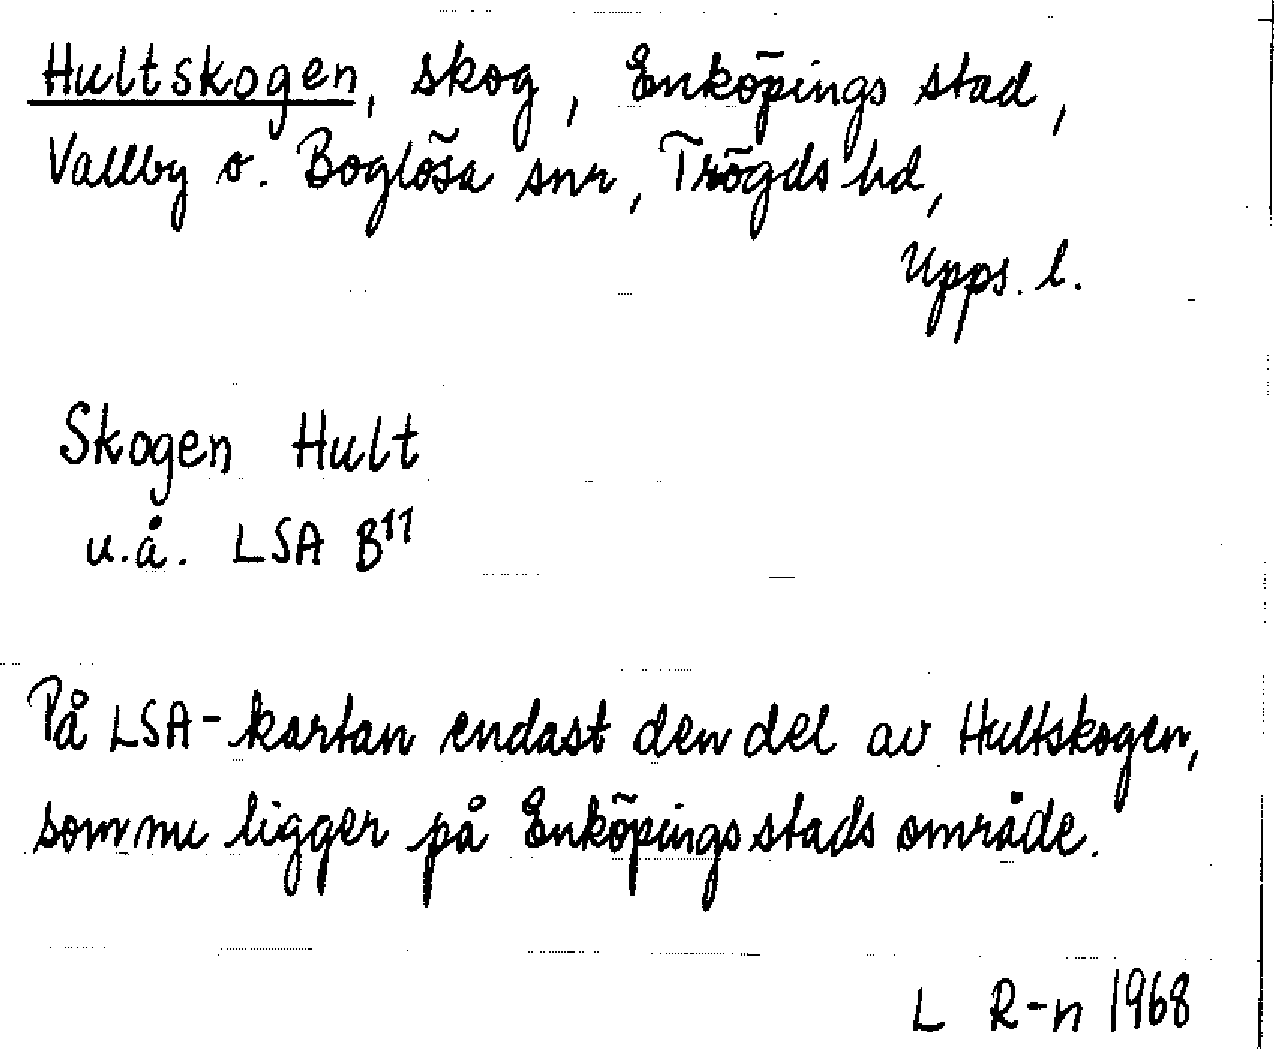 Hultskogen, skog, Enköpings stad,
Vallby o. Boglösa snr, Trögds hd,
Upps. l.
Skogen Hult
u.å. LSA B¹¹
På LSA-kartan endast den del av Hultskogen,
som nu ligger på Enköpings stads område.
L R-n 1968